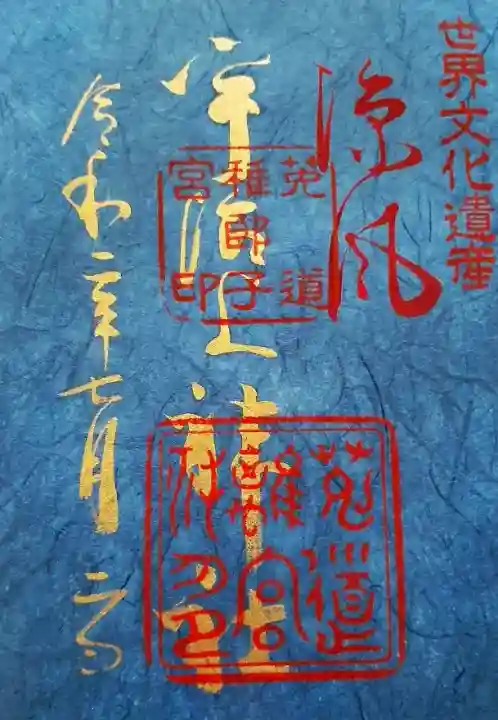 世界文化遺産
涼風
宇治上神社
菟道
稚郎子
宮印
令和二年七月二日